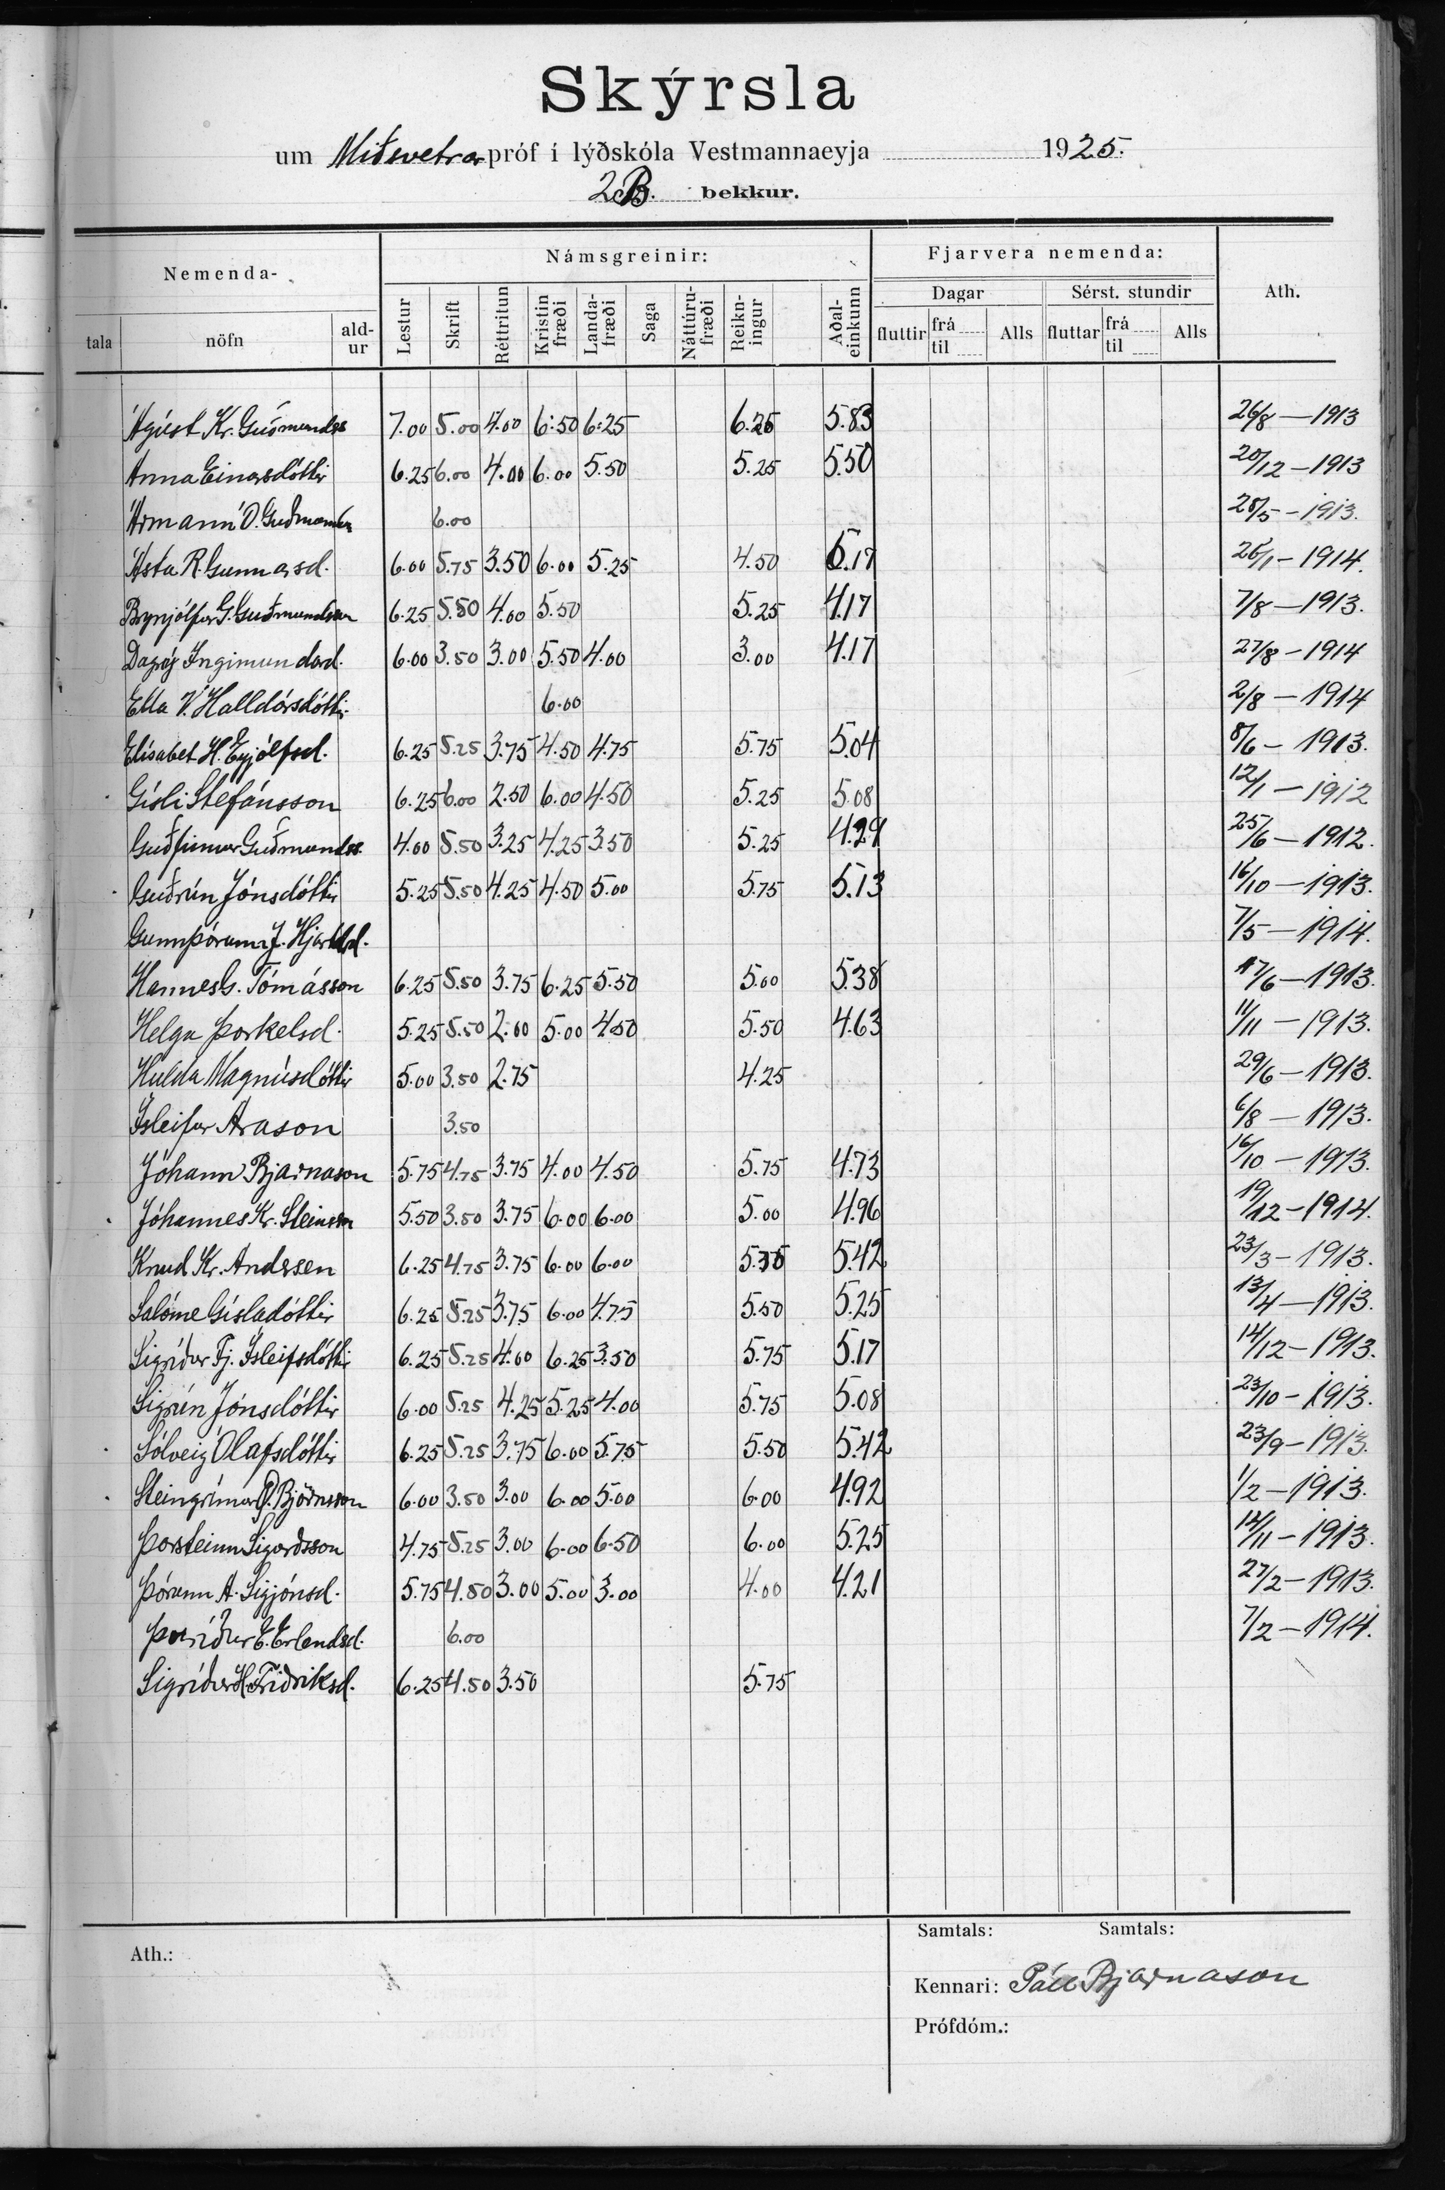 Skýrsla
um Miðsvetrar próf í lýðskóla Vestmannaeyja 1925.
2.B. bekkur.
Nemenda- Námsgreinir: Fjarvera nemenda: Ath.
Dagar Sérst. stundir
tala nöfn ald-ur Lestur Skrift Réttritun Kristin fræði Landa-fræði Saga Náttúru-fræði Reikn-ingur Aðal-einkunn fluttir frá til Alls fluttar frá til Alls
Ágúst Kr. Guðmunds 7.00 5.00 4.00 6.50 6.25 6.25 5.83 26/8 — 1913
Anna Einarsdóttir 6.25 6.00 4.00 6.00 5.50 5.25 5.50 20/12 – 1913
Ármann Ó. Guðmunds 6.00 28/5 – 1913.
Ásta R. Gunnarsd. 6.00 5.75 3.50 6.00 5.25 4.50 5.17 25/1 – 1914.
Brynjólfur G. Guðmundsson 6.25 5.50 4.00 5.50 5.25 4.17 7/8 – 1913.
Dagný Ingimundard. 6.00 3.50 3.00 5.50 4.00 3.00 4.17 27/8 – 1914
Ella V. Halldórsdóttir 6.00 2/8 – 1914
Elísabet H. Eyjólfsd. 6.25 5.25 3.75 4.50 4.75 5.75 5.04 8/6 – 1913.
Gísli Stefánsson 6.25 6.00 2.50 6.00 4.50 5.25 5.08 12/1 – 1912
Guðfinnur Guðmundss. 4.00 5.50 3.25 4.25 3.50 5.25 4.29 25/6 – 1912.
Guðrún Jónsdóttir 5.25 5.50 4.25 4.50 5.00 5.75 5.13 16/10 – 1913.
Gunnþórunn J. Hjartard. 7/5 – 1914.
Hannes G. Tómásson 6.25 5.50 3.75 6.25 5.50 5.00 5.38 17/6 – 1913.
Helga Þorkelsd. 5.25 5.50 2.00 5.00 4.50 5.50 4.63 11/11 – 1913.
Hulda Magnúsdóttir 5.00 3.50 2.75 4.25 29/6 – 1913.
Ísleifur Arason 3.50 6/8 – 1913.
Jóhann Bjarnason 5.75 4.75 3.75 4.00 4.50 5.75 4.73 16/10 – 1913.
Jóhannes Kr. Steinsson 5.50 3.50 3.75 6.00 6.00 5.00 4.96 19/12 – 1914.
Knud Kr. Andersen 6.25 4.75 3.75 6.00 6.00 5.42 23/3 – 1913.
Salóme Gísladóttir 6.25 5.25 3.75 6.00 4.75 5.50 5.25 13/4 – 1913.
Sigríður Fj. Ísleifsdóttir 6.25 5.25 4.00 6.25 3.50 5.75 5.17 14/12 – 1913.
Sigrún Jónsdóttir 6.00 5.25 4.25 5.25 4.00 5.75 5.08 23/10 – 1913.
Sólveig Ólafsdóttir 6.25 5.25 3.75 6.00 5.75 5.50 5.42 23/9 – 1913.
Steingrímur Björnsson 6.00 3.50 3.00 6.00 5.00 6.00 4.92 1/2 – 1913.
Þorsteinn Sigurðsson 4.75 5.25 3.00 6.00 6.50 6.00 5.25 14/11 – 1913.
Þórunn A. Sigjónsd. 5.75 4.50 3.00 5.00 3.00 4.00 4.21 27/2 – 1913.
Þuríður E. Erlendsd. 6.00 7/2 – 1914.
Sigríður H. Friðriksd. 6.25 4.50 3.50 5.75
Samtals: Samtals:
Ath.:
Kennari: Páll Bjarnason
Prófdóm.: